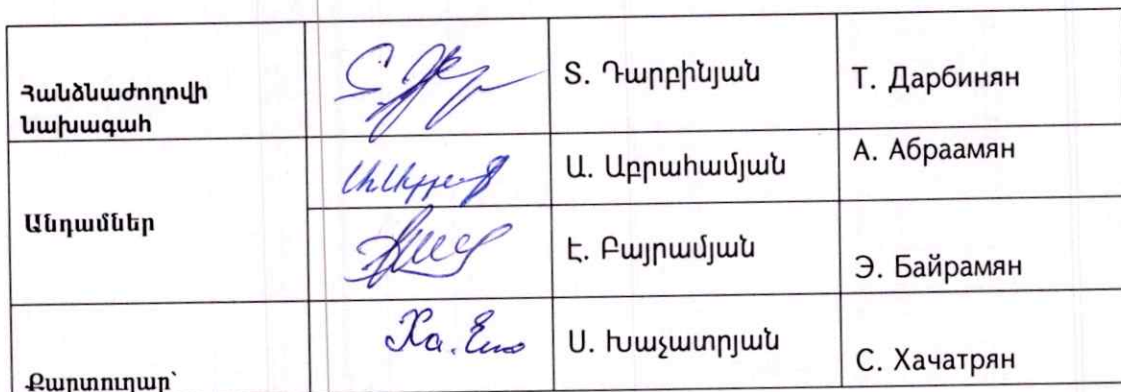 Հանձնաժողովի
նախագահ
Տ. Դարբինյան
Т. Дарбинян
Անդամներ
Ա. Աբրահամյան
А. Абраамян
Է. Բայրամյան
Э. Байрамян
Քարտուղար՝
Ս. Խաչատրյան
С. Хачатрян